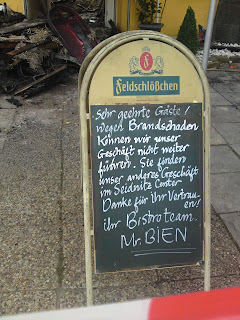 Feldschlößchen
Sehr geehrte Gäste!
wegen Brandschaden
können wir unser
Geschäft nicht weiter
führen. Sie finden
unser anderes Geschäft
im Seidnitz Center
Danke für Ihr Vertrau-
en!
ihr Bistroteam
Mr. BIEN